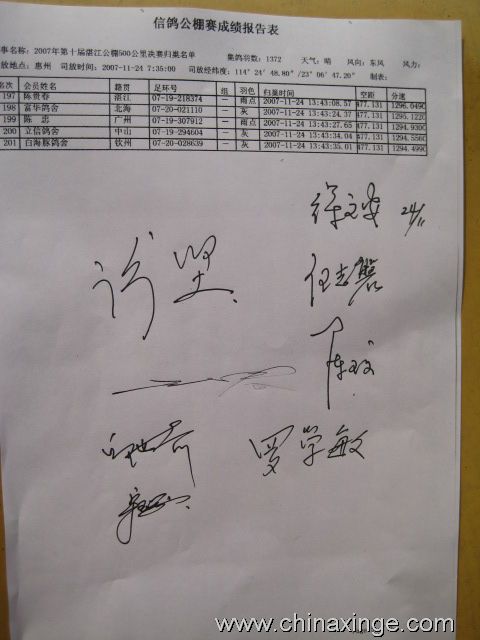 信鸽公棚赛成绩报告表
事名称: 2007年第十届湛江公棚500公里决赛归巢名单 集鸽羽数: 1372 天气: 晴 风向: 东风 风力:
放地点: 惠州 司放时间: 2007-11-24 7:35:00 司放经纬度: 114° 24′ 48.80″/23° 06′ 47.20″ 制表:
名次 会员姓名 籍贯 足环号 组 羽色 归巢时间 空距 分速
197 陈贵春 湛江 07-19-218374 一 雨点 2007-11-24 13:43:08.57 477.131 1296.0490
198 富华鸽舍 北海 07-20-021110 一 灰 2007-11-24 13:43:24.37 477.131 1295.1220
199 陈 忠 广州 07-19-307912 一 雨点 2007-11-24 13:43:27.65 477.131 1294.9300
200 立信鸽舍 中山 07-19-294604 一 灰 2007-11-24 13:43:34.04 477.131 1294.5560
201 白海豚鸽舍 钦州 07-20-028639 一 灰 2007-11-24 13:43:35.01 477.131 1294.4990
24/11
罗学敏
www.chinaxinge.com